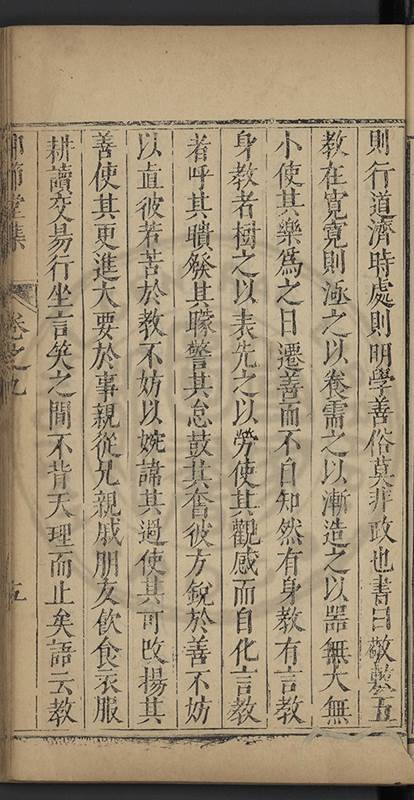 則行道濟時處則明學善俗莫非政也書曰敬敷五
教在寬寬則涵之以養需之以漸造之以器無大無
小使其樂為之日遷善而不自知然有身教有言教
身教者樹之以表先之以勞使其觀感而自化言教
者呼其聵發其矇警其怠鼓其奮彼方銳於善不妨
以直彼若苦於教不妨以婉諱其過使其可改揚其
善使其更進大要於事親從兄親戚朋友飲食衣服
耕讀交易行坐言笑之間不背天理而止矣語云教
節堂集
卷之九
五